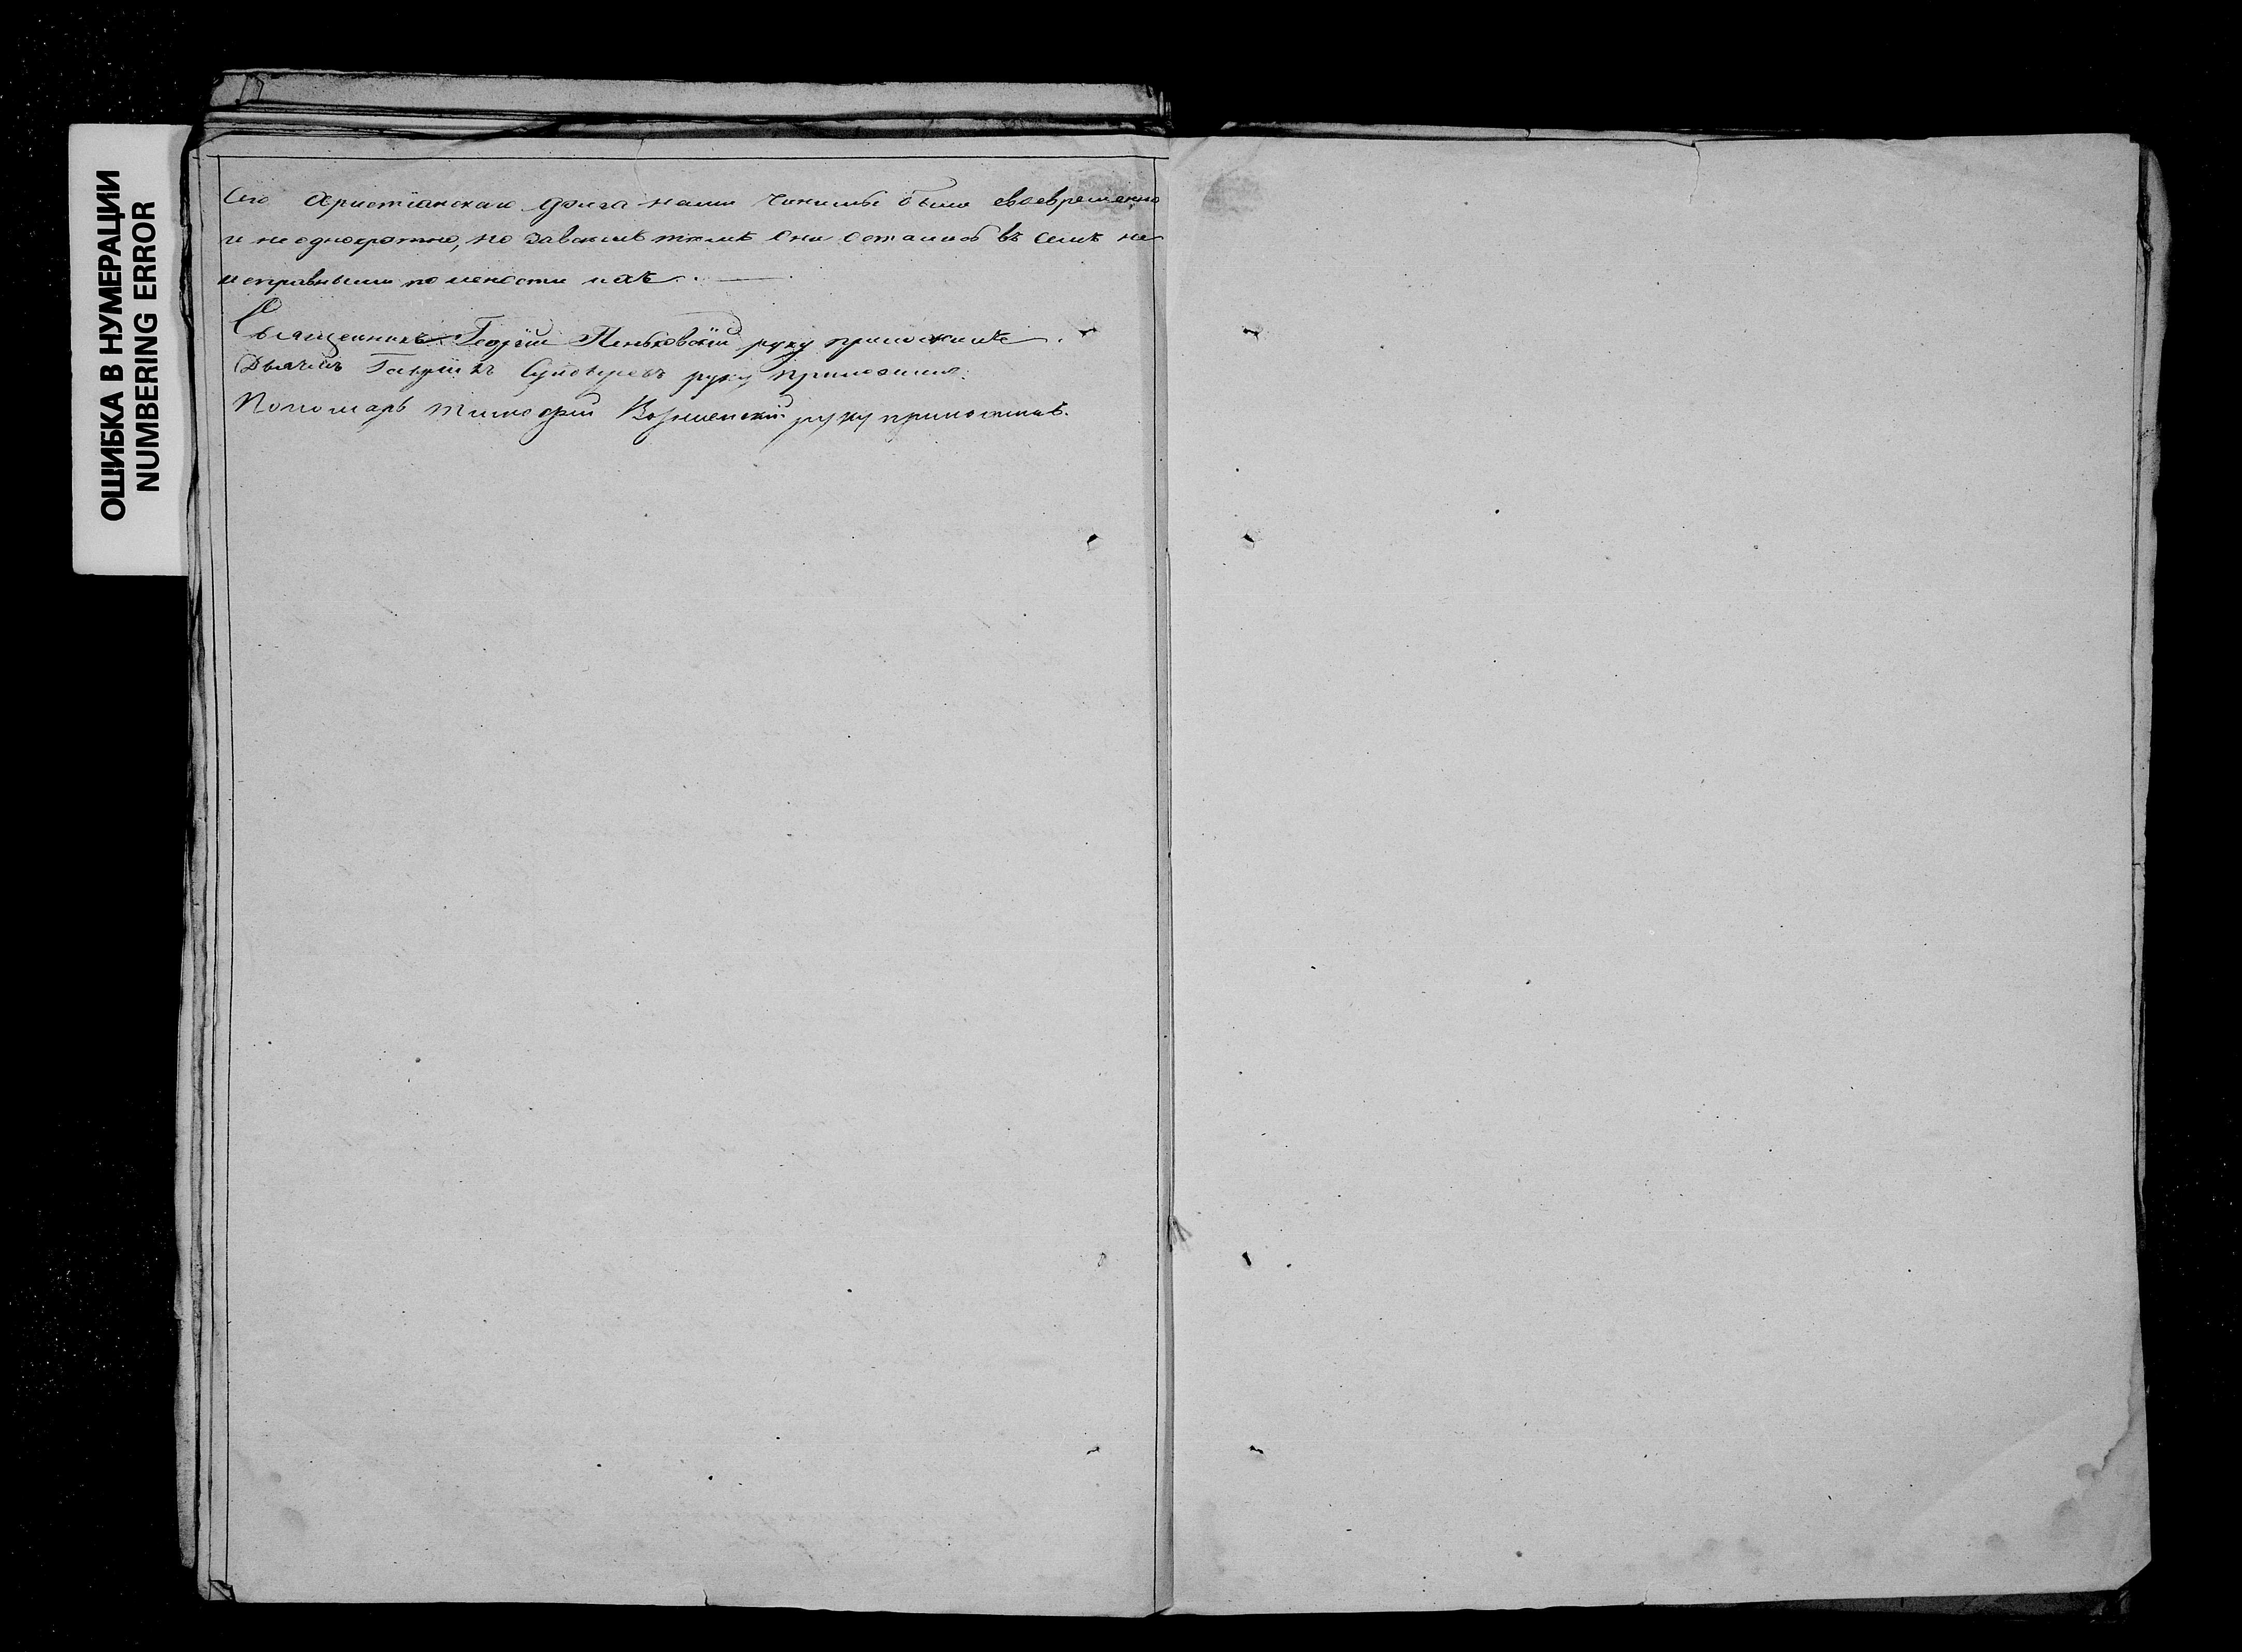 ОШИБКА В НУМЕРАЦИИ
NUMBERING ERROR
Сего Христіанскаго долга нами чинимы были своевременно
и неоднократно, но за всемъ темъ они остались въ семъ не
исправными по лености ихъ.
Священникъ Георгій Пеньковскій руку приложилъ.
Дьячекъ руку приложилъ.
Пономарь Тимофей руку приложилъ.